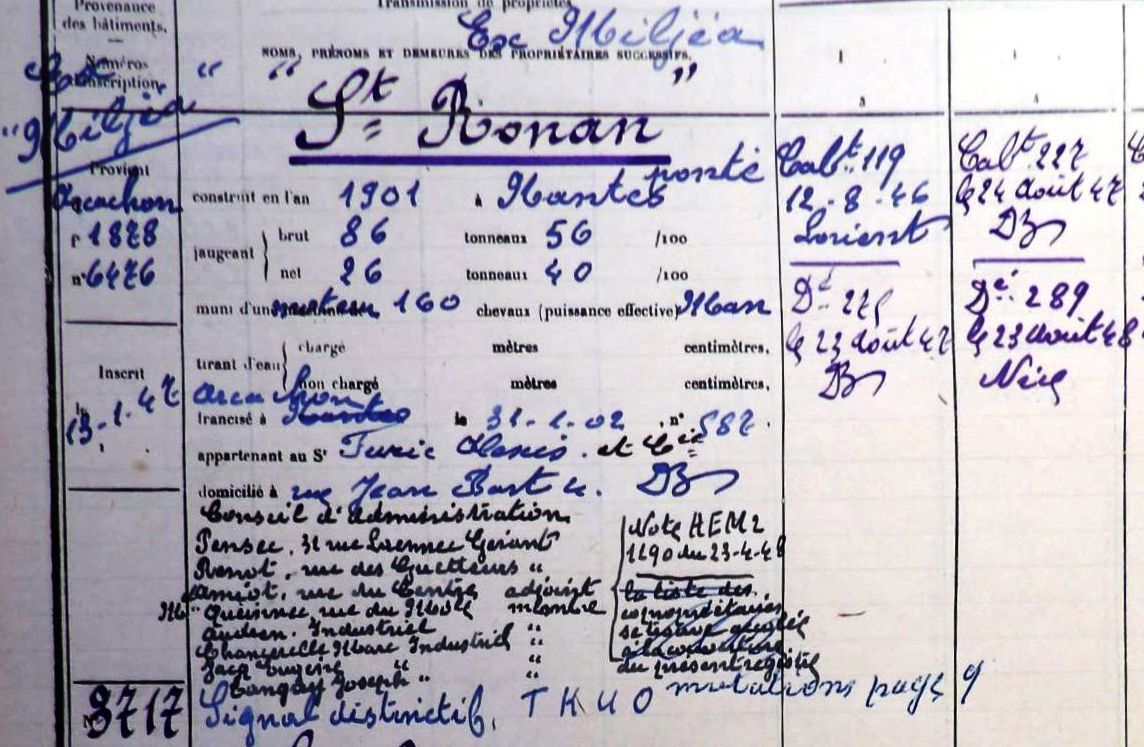 Provenance
des bâtiments.
Numéros
Ex
"Miljéa"
Provient
Arcachon
f° 1878
n° 6476
Inscrit
le
13-1-47
3717
Transmission de propriétés
Ex Miljéa
NOMS, PRÉNOMS ET DEMEURES DES PROPRIÉTAIRES SUCCESSIFS.
" " "
St Ronan
ponté
construit en l'an 1901 à Nantes
jaugeant
brut 86 tonneaux 56 /100
net 26 tonneaux 40 /100
muni d'un moteur 160 chevaux (puissance effective) Man
tirant d'eau
chargé mètres centimètres.
non chargé mètres centimètres.
Arcachon
francisé à Nantes le 31-1-02 , n° 587.
appartenant au Sr Furic Alexis. et Cie
domicilié à rue Jean Bart
Conseil d'administration
Pensec, 31 rue Laennec Gérant
rue des Guetteurs "
rue du Centre adjoint
Quiniou rue du Môle membre
Industriel "
Chancerelle Marc Industriel "
" "
Joseph " "
Note HEM2
1190 du 23-4-48
la liste des
copropriétaires
se trouve
à la couverture
du présent registre
Signal distinctif. TKUO mutations page 9
1
3
Cabt. 119
12-8-46
Lorient
Dé
le 23 août 47
DZ
1
4
Cabt 227
le 24 août 47
DZ
Dé: 289
le 23 août 48